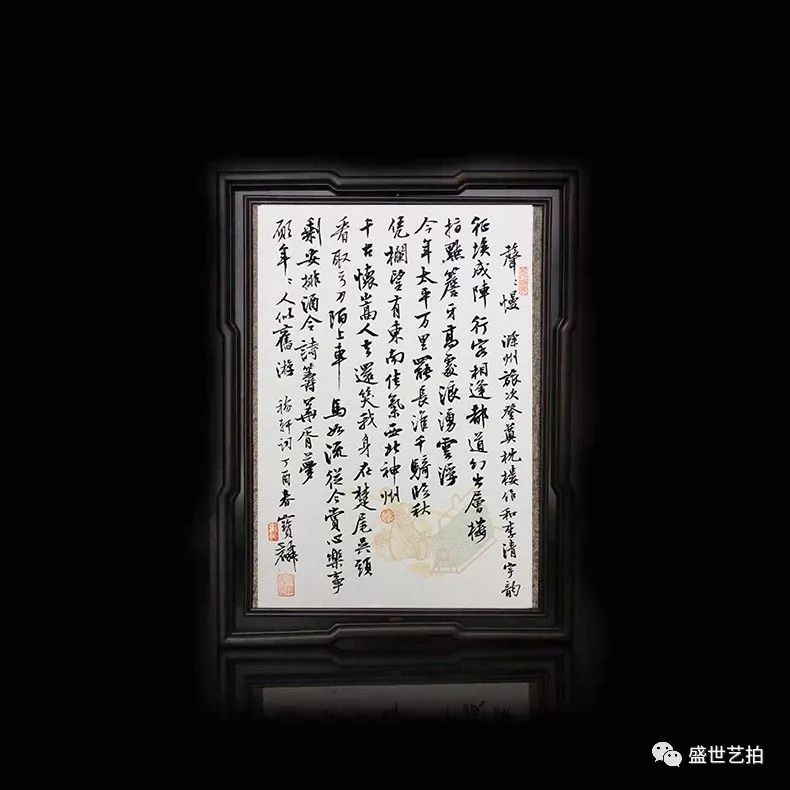 聲〻慢 滁州旅次登奠枕楼作和李清宇韵
征埃成陣 行客相逢都道幻出層楼
指點簷牙高處浪湧雲浮
今年太平万里罷長淮千騎臨秋
凭欄望有東南佳氣西北神州
千古懷嵩人去還笑我身在楚尾吳頭
看取弓刀陌上車馬如流從今賞心樂事
剩安排酒令詩籌華胥夢
願年〻人似舊游 稼軒词丁酉春寶麟
盛世艺拍